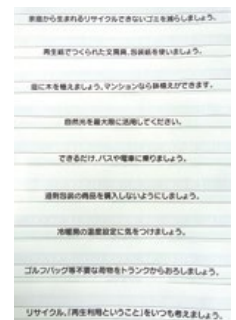 家庭から生まれるリサイクルできないゴミを減らしましょう。
再生紙でつくられた文房具、包装紙を使いましょう。
庭に木を植えましょう、マンションなら鉢植えができます。
自然光を最大限に活用してください。
できるだけ、バスや電車に乗りましょう。
過剰包装の商品を購入しないようにしましょう。
冷暖房の温度設定に気をつけましょう。
ゴルフバッグ等不要な荷物をトランクからおろしましょう。
リサイクル、「再生利用ということ」をいつも考えましょう。